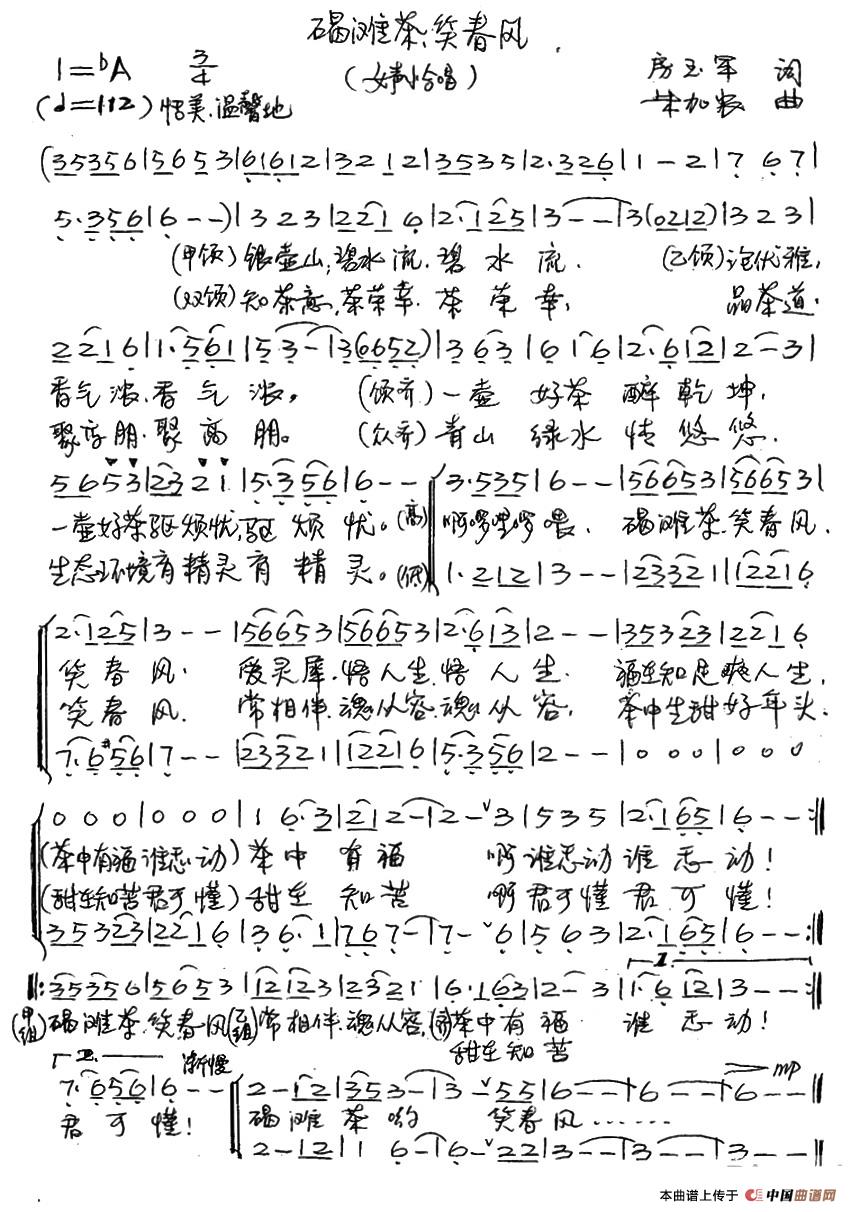 碣滩茶,笑春风
1=♭A 3/4 (女声小合唱) 房玉军 词
(♩=112) 恬美、温馨地 朱加农 曲
(35356|5653|6161 2|3212|3535|2·326|1-2|7 6 7|
5·356|6--)|3 2 3|221 6|2·125|3--|3(0212)|3 2 3|
(甲领)银壶山,碧水流,碧水流. (乙领)论优雅,
(双领)知茶意,茶荣幸,茶荣幸, 品茶道,
221 6|1·561|5 3-|3(6652)|3 6 3|6 1 6|2·612|2-3|
香气浓,香气浓。 (领齐)一壶好茶醉乾坤,
聚高朋,聚高朋。 (众齐)青山绿水情悠悠,
5653|2321|5·356|6--|3·535|6--|56653|56653|
一壶好茶驱烦忧,驱烦忧。(高)啊啰哩啰喂. 碣滩茶,笑春风.
生态环境有精灵有精灵。(低)1·212|3--|23321|1221 6
2·125|3--|56653|56653|2·613|2--|35323|221 6
笑春风. 爱灵犀,悟人生,悟人生. 福在知足爽人生,
笑春风. 常相伴,魂从容,魂从容, 茶中生甜好年头.
7·#656|7--|23321|1221 6|5·356|2--|000|000
000|000|1 6·3|212-|2-ˇ3|535|2·165|6--:‖
(茶中有福谁感动)茶中有福 啊谁感动谁感动!
(甜在知苦君可懂)甜在知苦 啊君可懂君可懂!
35323|221 6|3 6·1|767-|7-ˇ6|563|2·165|6--:‖
‖:35356|5653|12123|2321|6·163|2-3|1·612|3--:‖
(甲组)碣滩茶,笑春风(乙组)常相伴,魂从容,(齐)茶中有福 谁感动!
甜在知苦
2. 渐慢 mp
7·656|6--|2-12|353-|3-ˇ55|6--|6--|6--‖
君可懂! 碣滩茶哟 笑春风......
2-12|1 6-|6-ˇ22|3--|3--|3--‖
本曲谱上传于 中国曲谱网